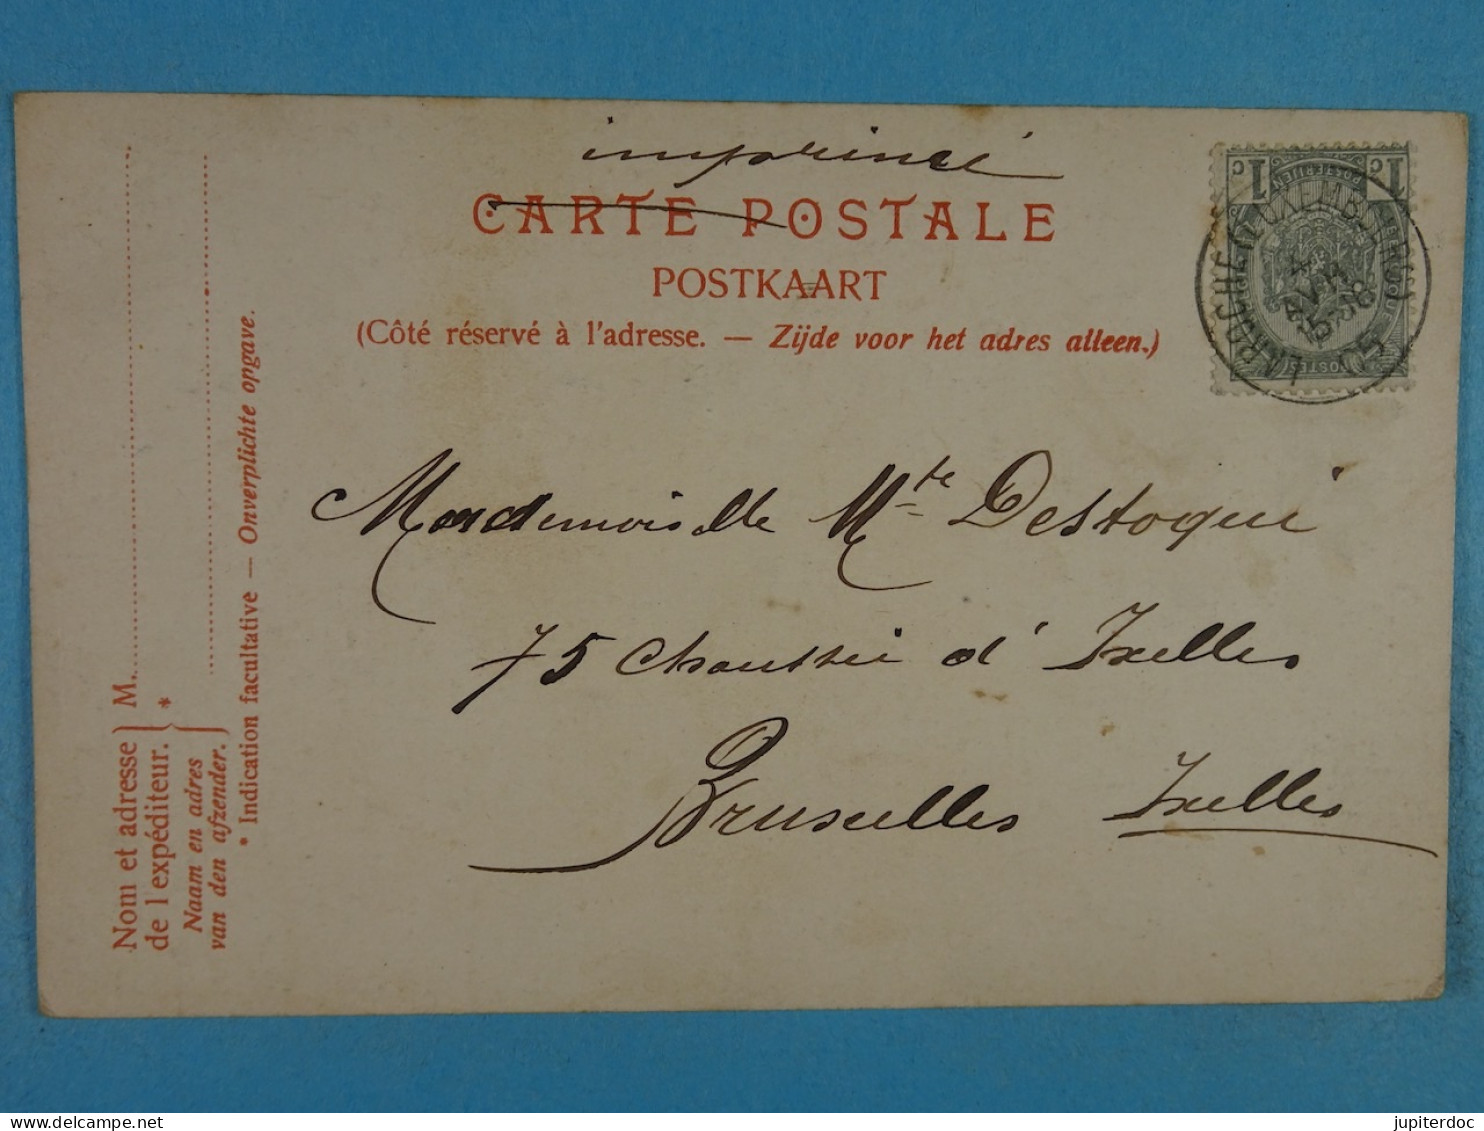 imprimé
CARTE POSTALE
POSTKAART
(Côté réservé à l'adresse. — Zijde voor het adres alleen.)
Mademoiselle Mte Destoqui
75 Chaussée d'Ixelles
Bruxelles Ixelles
Nom et adresse de l'expéditeur.
Naam en adres van den afzender.
M.
*
* Indication facultative — Onverplichte opgave.
1c 1c
POSTERIJEN
POSTES
LAROCHE (LUXEMBOURG)
AVR
jupiterdoc
delcampe.net